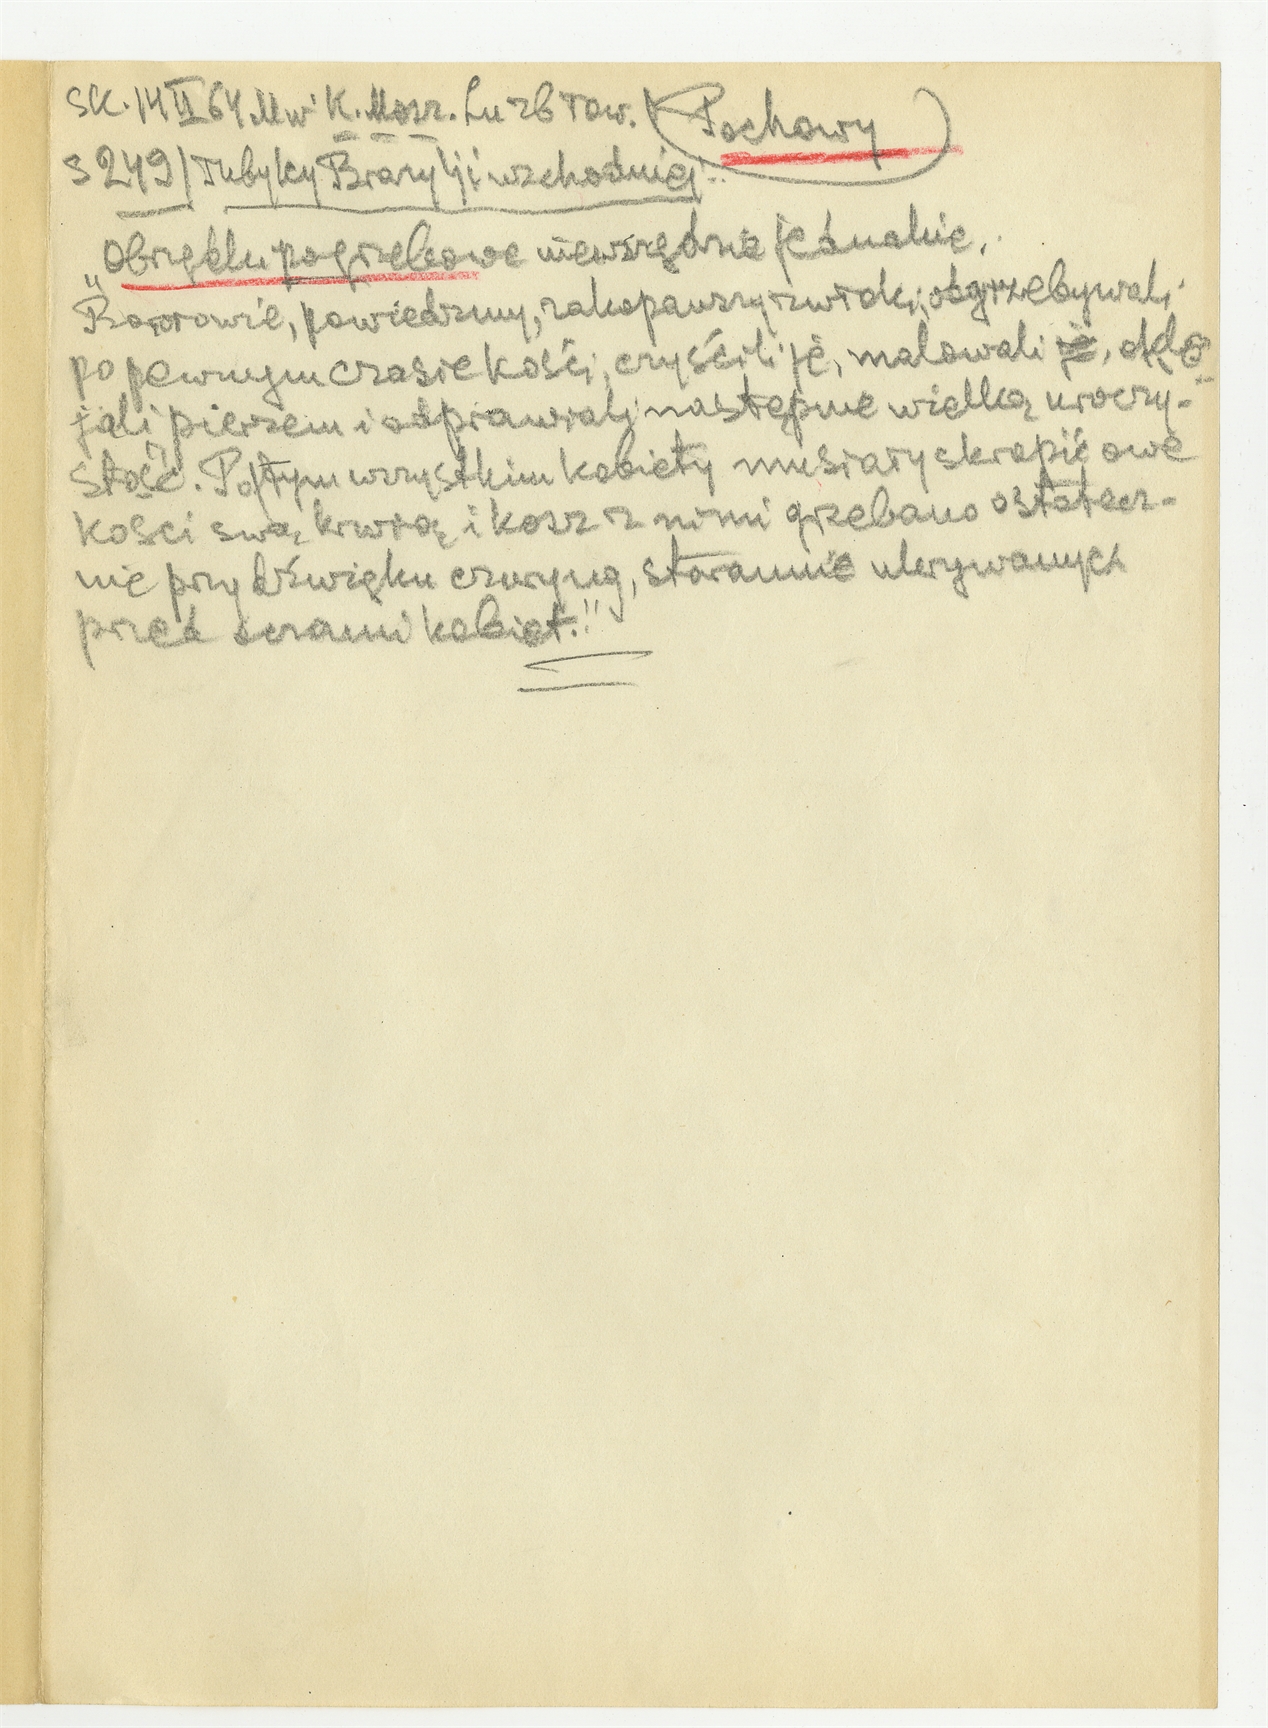 SK. 14 II 64. Mw. K. Mosz. Lu zb Tow. (Pochowy)
S 249/ Tubylcy Brazylji wschodniej.
„Obrzędy pogrzebowe niewszędzie jednakie.
Bororowie, powiedzmy, zakopawszy zwłoki, odgrzebywali
po pewnym czasie kości, czyścili je, malowali je, okle-
jali pierzem i odprawiali następnie wielką uroczy-
stość. Po tym wszystkim kobiety musiały skropić owe
kości swą krwią i kosz z nimi grzebano ostatecz-
nie przy dźwięku czuryng, starannie ukrywanych
przed oczami kobiet."